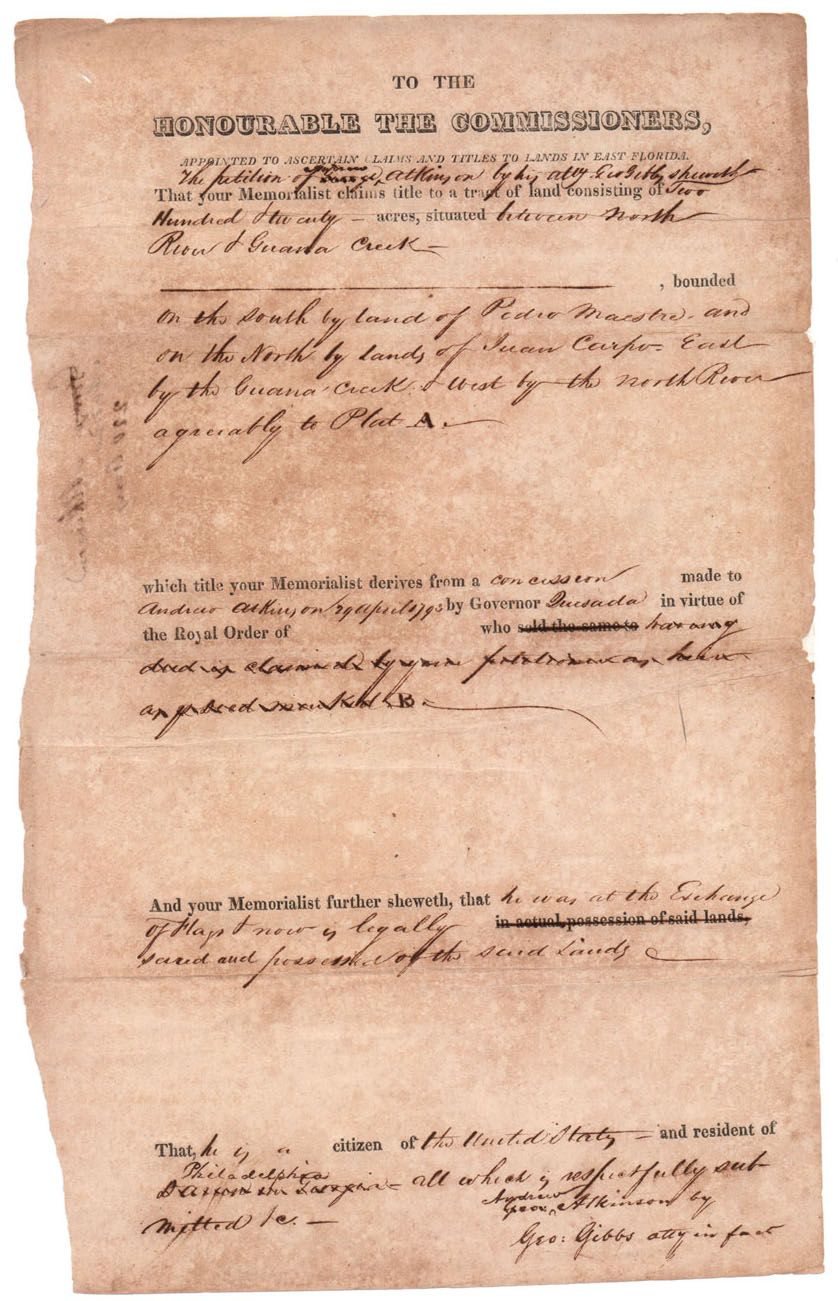 TO THE
HONOURABLE THE COMMISSIONERS,
APPOINTED TO ASCERTAIN CLAIMS AND TITLES TO LANDS IN EAST FLORIDA.
The petition of Andrew George Atkinson by his atty Geo Gibbs sheweth
That your Memorialist claims title to a tract of land consisting of Two
Hundred & twenty — acres, situated between North
River & Guana Creek —
, bounded
on the south by land of Pedro Maestre and
on the North by lands of Juan Carpo - East
by the Guana Creek & West by the north River
agreeably to Plat A.
which title your Memorialist derives from a concession made to
Andrew Atkinson 29 April 1793 by Governor Quesada in virtue of
the Royal Order of who sold the same to having
died is claimed by your petitioner as heir
as p deed marked B.
And your Memorialist further sheweth, that he was at the Exchange
of Flags & now is legally in actual possession of said lands,
seized and possessed of the said Lands
That, he is a citizen of the United States — and resident of
Philadelphia
all which is respectfully sub-
mitted &c. —
Andrew Geo: Atkinson by
Geo: Gibbs atty in fact
220 Acres